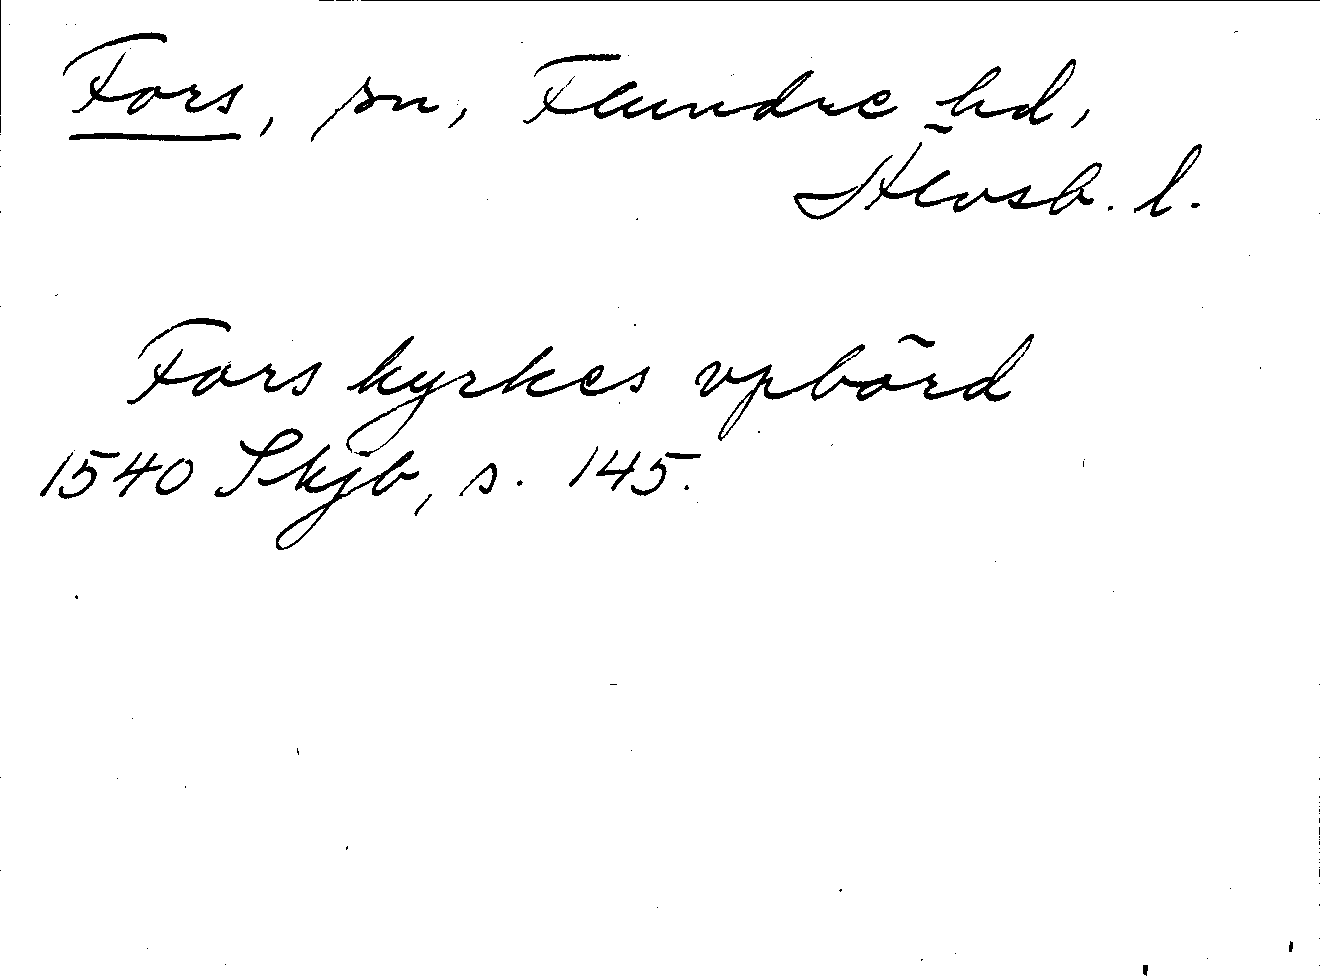 Fors, sn, Flundre hd,
Älvsb. l.
Fors kyrkes vpbörd
1540 Skjb, s. 145.